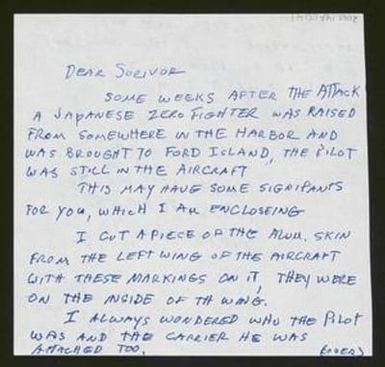 DEAR SURIVOR
SOME WEEKS AFTER THE ATTACK
A JAPANESE ZERO FIGHTER WAS RAISED
FROM SOMEWHERE IN THE HARBOR AND
WAS BROUGHT TO FORD ISLAND, THE PILOT
WAS STILL IN THE AIRCRAFT
THIS MAY HAVE SOME SIGNIFANTS
FOR YOU, WHICH I AM ENCLOSEING
I CUT A PIECE OF THE ALUM. SKIN
FROM THE LEFT WING OF THE AIRCRAFT
WITH THESE MARKINGS ON IT, THEY WERE
ON THE INSIDE OF TH WING.
I ALWAYS WONDERED WHO THE PILOT
WAS AND THE CARRIER HE WAS
ATTACHED TOO. (OVER)